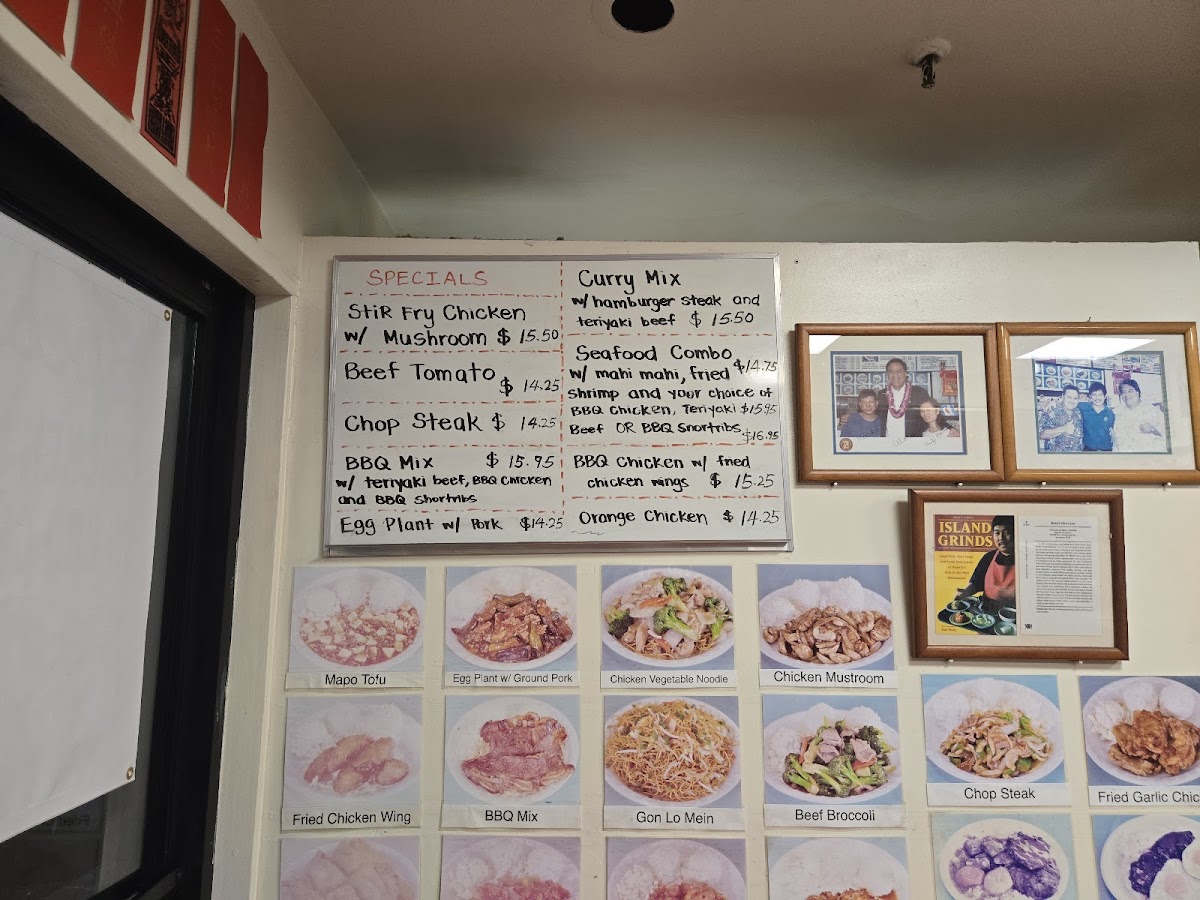 SPECIALS
StiR Fry Chicken
w/ Mushroom $ 15.50
Beef Tomato $ 14.25
Chop Steak $ 14.25
BBQ Mix $ 15.95
w/ teriyaki beef, BBQ Chicken
and BBQ Shortribs
Egg Plant w/ Pork $14.25
Curry Mix
w/ hamburger steak and
teriyaki beef $ 15.50
Seafood Combo $14.75
w/ mahi mahi, fried
Shrimp and your choice of
BBQ Chicken, Teriyaki $15.95
Beef OR BBQ Shortribs $16.95
BBQ Chicken w/ fried
chicken wings $ 15.25
Orange Chicken $ 14.25
ISLAND
GRINDS
Mapo Tofu
Egg Plant w/ Ground Pork
Chicken Vegetable Noodle
Chicken Mustroom
Fried Chicken Wing
BBQ Mix
Gon Lo Mein
Beef Broccoli
Chop Steak
Fried Garlic Chic